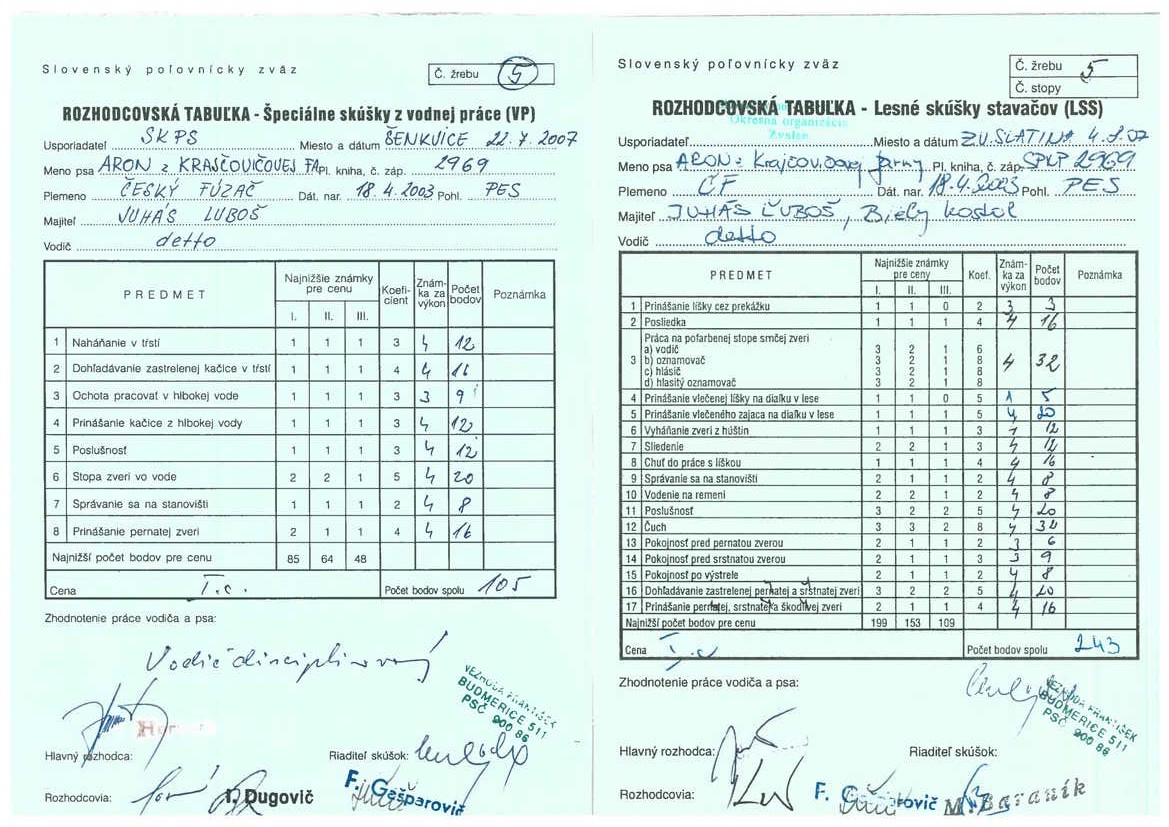 Slovenský poľovnícky zväz
Č. žrebu 5
ROZHODCOVSKÁ TABUĽKA - Špeciálne skúšky z vodnej práce (VP)
Usporiadateľ SKPS Miesto a dátum ŠENKVICE 22.7.2007
Meno psa ARON z KRAJČOVIČOVEJ FA Pl. kniha, č. záp. 2969
Plemeno ČESKÝ FÚZAČ Dát. nar. 18.4.2003 Pohl. PES
Majiteľ JUHÁS LUBOŠ
Vodič detto
PREDMET Najnižšie známky pre cenu I. II. III. Koeficient Známka za výkon Počet bodov Poznámka
1 Naháňanie v tŕstí 1 1 1 3 4 12
2 Dohľadávanie zastrelenej kačice v tŕstí 1 1 1 4 4 16
3 Ochota pracovať v hlbokej vode 1 1 1 3 3 9
4 Prinášanie kačice z hlbokej vody 1 1 1 3 4 12
5 Poslušnosť 1 1 1 3 4 12
6 Stopa zveri vo vode 2 2 1 5 4 20
7 Správanie sa na stanovišti 1 1 1 2 4 8
8 Prinášanie pernatej zveri 2 1 1 4 4 16
Najnižší počet bodov pre cenu 85 64 48
Cena I.c. Počet bodov spolu 105
Zhodnotenie práce vodiča a psa:
Vodič disciplinovaný
VEZNODA FRANTIŠEK
BUDMERICE 511
PSČ 900 86
Hlavný rozhodca: Riaditeľ skúšok:
Rozhodcovia: I. Dugovič F. Gešparovič
Slovenský poľovnícky zväz
Č. žrebu 5
Č. stopy
ROZHODCOVSKÁ TABUĽKA - Lesné skúšky stavačov (LSS)
Okresná organizácia
Zvolen
Usporiadateľ Miesto a dátum ZV.SLATINA 4.8.07
Meno psa ARON z Krajčovičovej farmy Pl. kniha, č. záp. SPKP 2969
Plemeno ČF Dát. nar. 18.4.2003 Pohl. PES
Majiteľ JUHÁS ĽUBOŠ, Biely kostol
Vodič detto
PREDMET Najnižšie známky pre ceny I. II. III. Koef. Známka za výkon Počet bodov Poznámka
1 Prinášanie líšky cez prekážku 1 1 0 2 3 3
2 Posliedka 1 1 1 4 4 16
3 Práca na pofarbenej stope srnčej zveri
a) vodič 3 2 1 6
b) oznamovač 3 2 1 8 4 32
c) hlásič 3 2 1 8
d) hlasitý oznamovač 3 2 1 8
4 Prinášanie vlečenej líšky na diaľku v lese 1 1 0 5 1 5
5 Prinášanie vlečeného zajaca na diaľku v lese 1 1 1 5 4 20
6 Vyháňanie zveri z húštin 1 1 1 3 12
7 Sliedenie 2 2 1 3 4 12
8 Chuť do práce s líškou 1 1 1 4 4 16
9 Správanie sa na stanovišti 2 1 1 2 4 8
10 Vodenie na remeni 2 2 1 2 4 8
11 Poslušnosť 3 2 2 5 4 20
12 Čuch 3 3 2 8 4 32
13 Pokojnosť pred pernatou zverou 2 1 1 2 3 6
14 Pokojnosť pred srstnatou zverou 2 1 1 3 3 9
15 Pokojnosť po výstrele 2 1 1 2 4 8
16 Dohľadávanie zastrelenej pernatej a srstnatej zveri 3 2 2 5 4 20
17 Prinášanie pernatej, srstnatej a škodlivej zveri 2 1 1 4 4 16
Najnižší počet bodov pre cenu 199 153 109
Cena I.c Počet bodov spolu 243
Zhodnotenie práce vodiča a psa:
VEZNODA FRANTIŠEK
BUDMERICE 511
PSČ 900 86
Hlavný rozhodca: Riaditeľ skúšok:
Rozhodcovia: F. Gešparovič M. Baraník